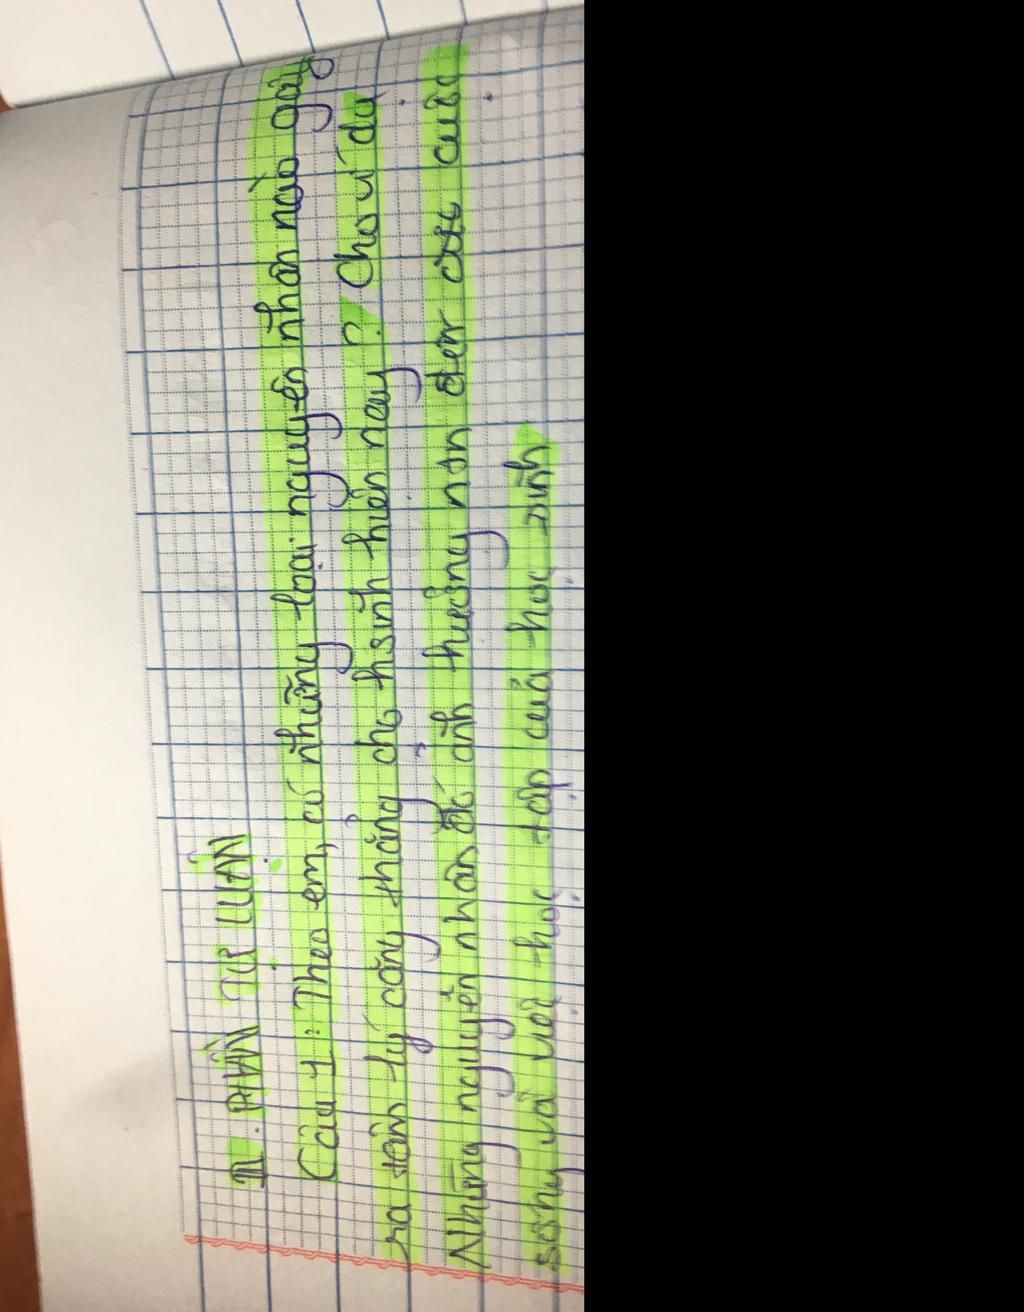 II. PHẦN TỰ LUẬN
Câu 1: Theo em, có những loại nguyên nhân nào gây
ra tâm lý căng thẳng cho hsinh hiện nay? Cho ví dụ
Những nguyên nhân đó ảnh hưởng ntn đến cuộc
sống và việc học tập của học sinh